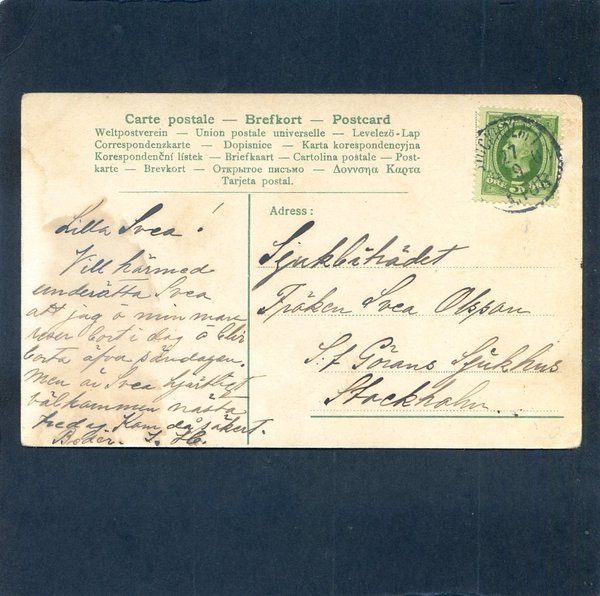 Carte postale — Brefkort — Postcard
Weltpostverein — Union postale universelle — Levelező-Lap
Correspondenzkarte — Dopisnice — Karta korespondencyjna
Korespondenční lístek — Briefkaart — Cartolina postale — Post-
karte — Brevkort — Открытое письмо — Δοννσηα Καρτα
Tarjeta postal.
5
Lilla Svea!
Vill härmed
underätta Svea
att jag o min man
reser bort i dag o blir
borta äfva söndagen.
men är Svea hjärtligt
välkommen nästa
fredag Kom då säkert.
Adress:
Sjukbiträdet
Fröken Svea Olsson
S:t Görans Sjukhus
Stockholm